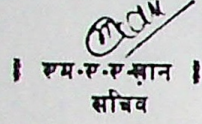 । एम॰ए॰ए॰खान ।
सचिव